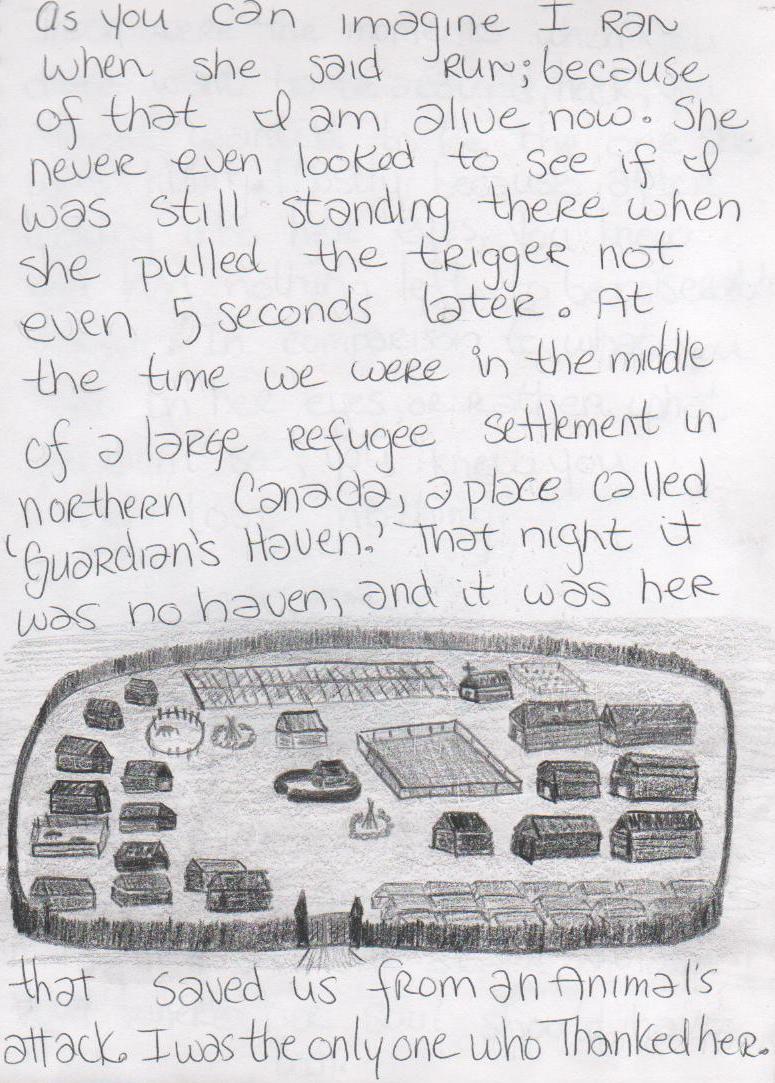 As you can imagine I ran
when she said run; because
of that I am alive now. She
never even looked to see if I
was still standing there when
she pulled the trigger not
even 5 seconds later. At
the time we were in the middle
of a large refugee settlement in
northern Canada, a place called
'Guardian's Haven.' That night it
was no haven, and it was her
that saved us from an Animal's
attack. I was the only one who Thanked her.